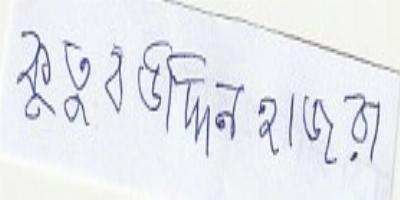 কুতুবউদ্দিন হাজরা